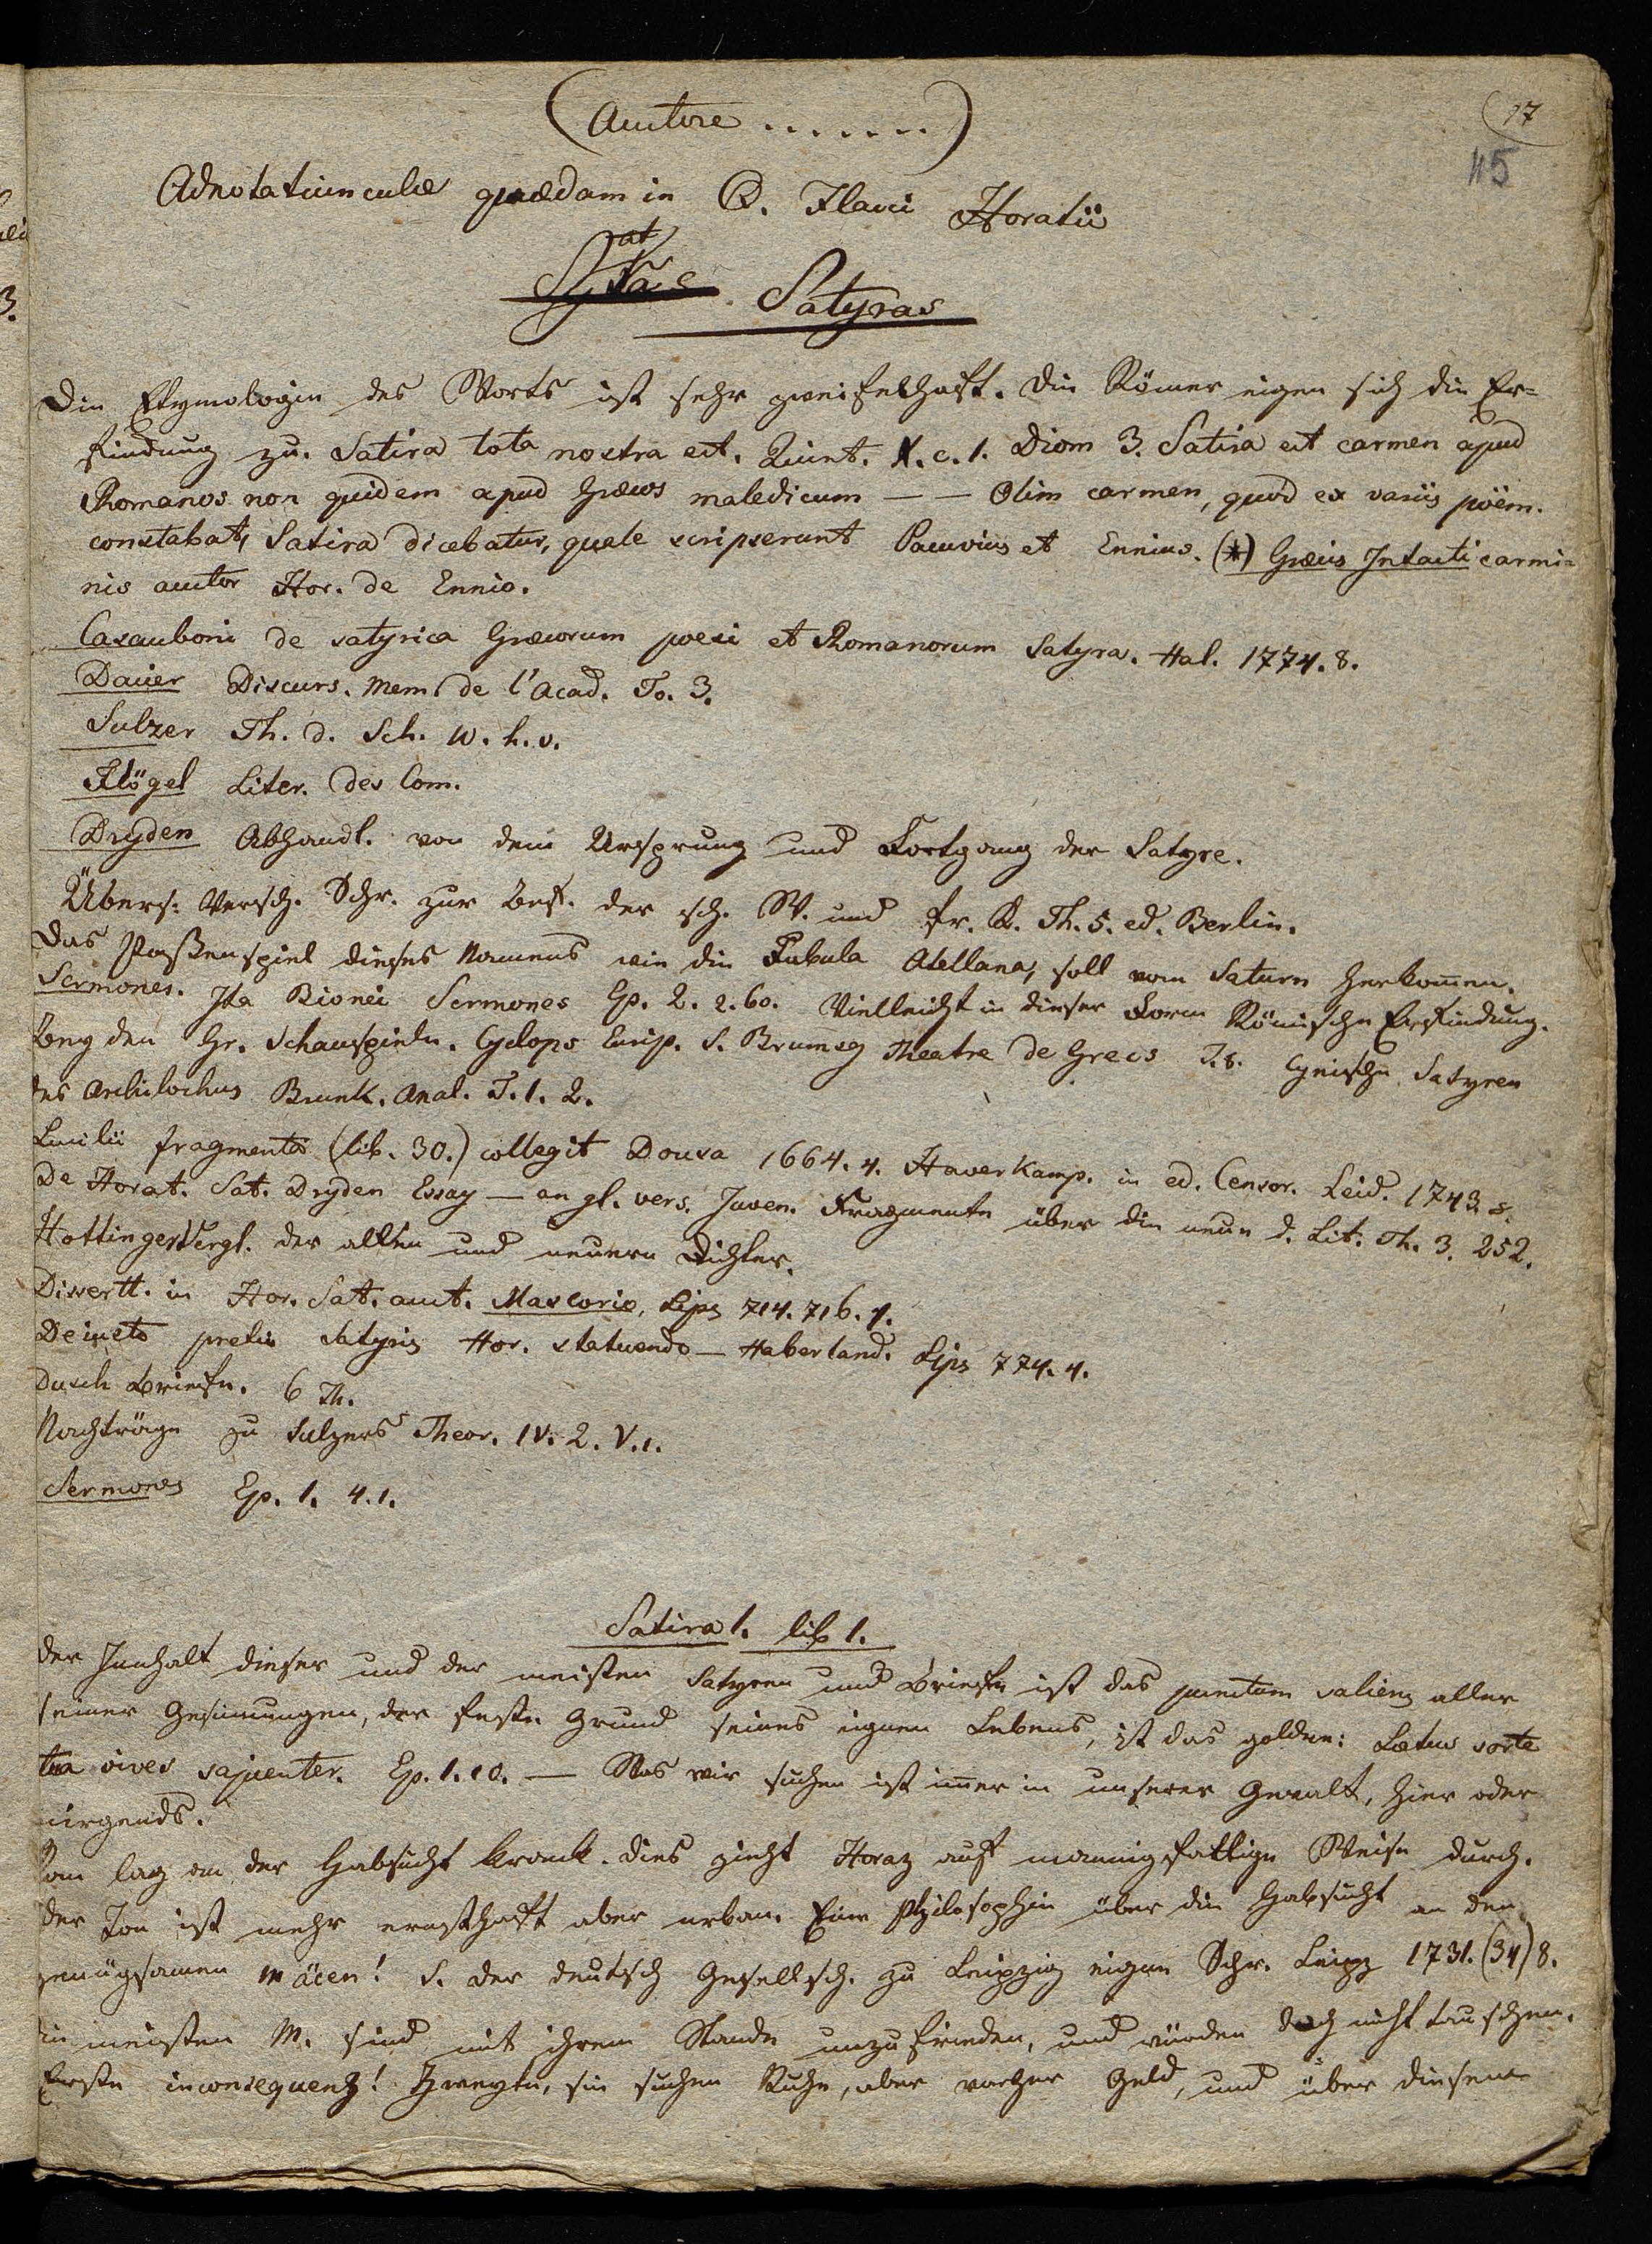 (Auctore .......)
17
115
Adnotatiunculae quaedam in Q. Flacci Horatii
Satyras
Die Etymologie des Worts ist sehr zweifelhaft. Die Römer eigen sich die Er-
findung zu. Satira tota nostra est. Quint. X. c. 1. Diom 3. Satira est carmen apud
Romanos non quidem apud Graecos maledicum — — Olim carmen, quod ex variis poëm.
constabat, Satira dicebatur, quale scripserunt Pacuvius et Ennius. (*) Graecis Intacti carmi-
nis auctor Hor. de Ennio.
Casauboni de satyrica Graecorum poesi et Romanorum Satyra. Hal. 1774. 8.
Dacier Discurs. Mem. de l'Acad. To. 3.
Sulzer Th. d. Sch. W. h. v.
Flögel Liter. des Com.
Dryden Abhandl. von dem Ursprung und Fortgang der Satyre.
Übers: Versch. Schr. zur Bef. der sch. W. und fr. K. Th. 5. ed. Berlin.
Das Possenspiel dieses Namens wie die Fabula Atellana, soll vom Saturn herkommen.
Sermones. Ita Bionei Sermones Ep. 2. 2. 60. Vielleicht in dieser Form Römische Erfindung.
Bey den Gr. Schauspieln. Cyclops Eurip. S. Brumoy Theatre de Grecs T. 8. Cynische Satyren
des Archilochus Brunk. Anal. T. 1. 2.
Lucilii fragmenta (lib. 30.) collegit Dousa 1664. 4. Haverkamp. in ed. Censor. Leid. 1743. 8.
De Horat. Sat. Dryden Essay — an gl. vers. Juven. Fragmente über die neue d. Lit. Th. 3. 252.
Hottinger Vergl. der alten und neuern Dichter.
Dissertt. in Hor. Sat. auct. Mascovio, Lips 714. 716. 4.
De iusto pretio Satyris Hor. statuendo — Haberland. Lips 774. 4.
Dusch Briefe. 6 Th.
Nachträge zu Sulzers Theor. IV. 2. V. 1.
Sermones Ep. 1. 4. 1.
Satira 1. lib 1.
Der Innhalt dieser und der meisten Satyren und Briefe ist das punctum saliens aller
seiner Gesinnungen, der feste Grund seines eignen Lebens, ist das goldne: Laetus sorte
tua vives sapienter. Ep. 1. 10. — Was wir suchen ist immer in unserer Gewalt, hier oder
nirgends.
Rom lag an der Habsucht krank. Dies zieht Horaz auf mannigfaltige Weise durch.
Der Ton ist mehr ernsthaft aber urban. Eine Philosophie über die Habsucht an den
genügsamen Mäcen! S. der deutsch Gesellsch. zu Leipzig eigne Schr. Leipz 1731. (34) 8.
Die meisten M. sind mit ihrem Stande unzufrieden, und würden doch nicht tauschen.
Erste inconsequenz! Zweyte, sie suchen Ruhe, aber vorher Geld, und über diesem